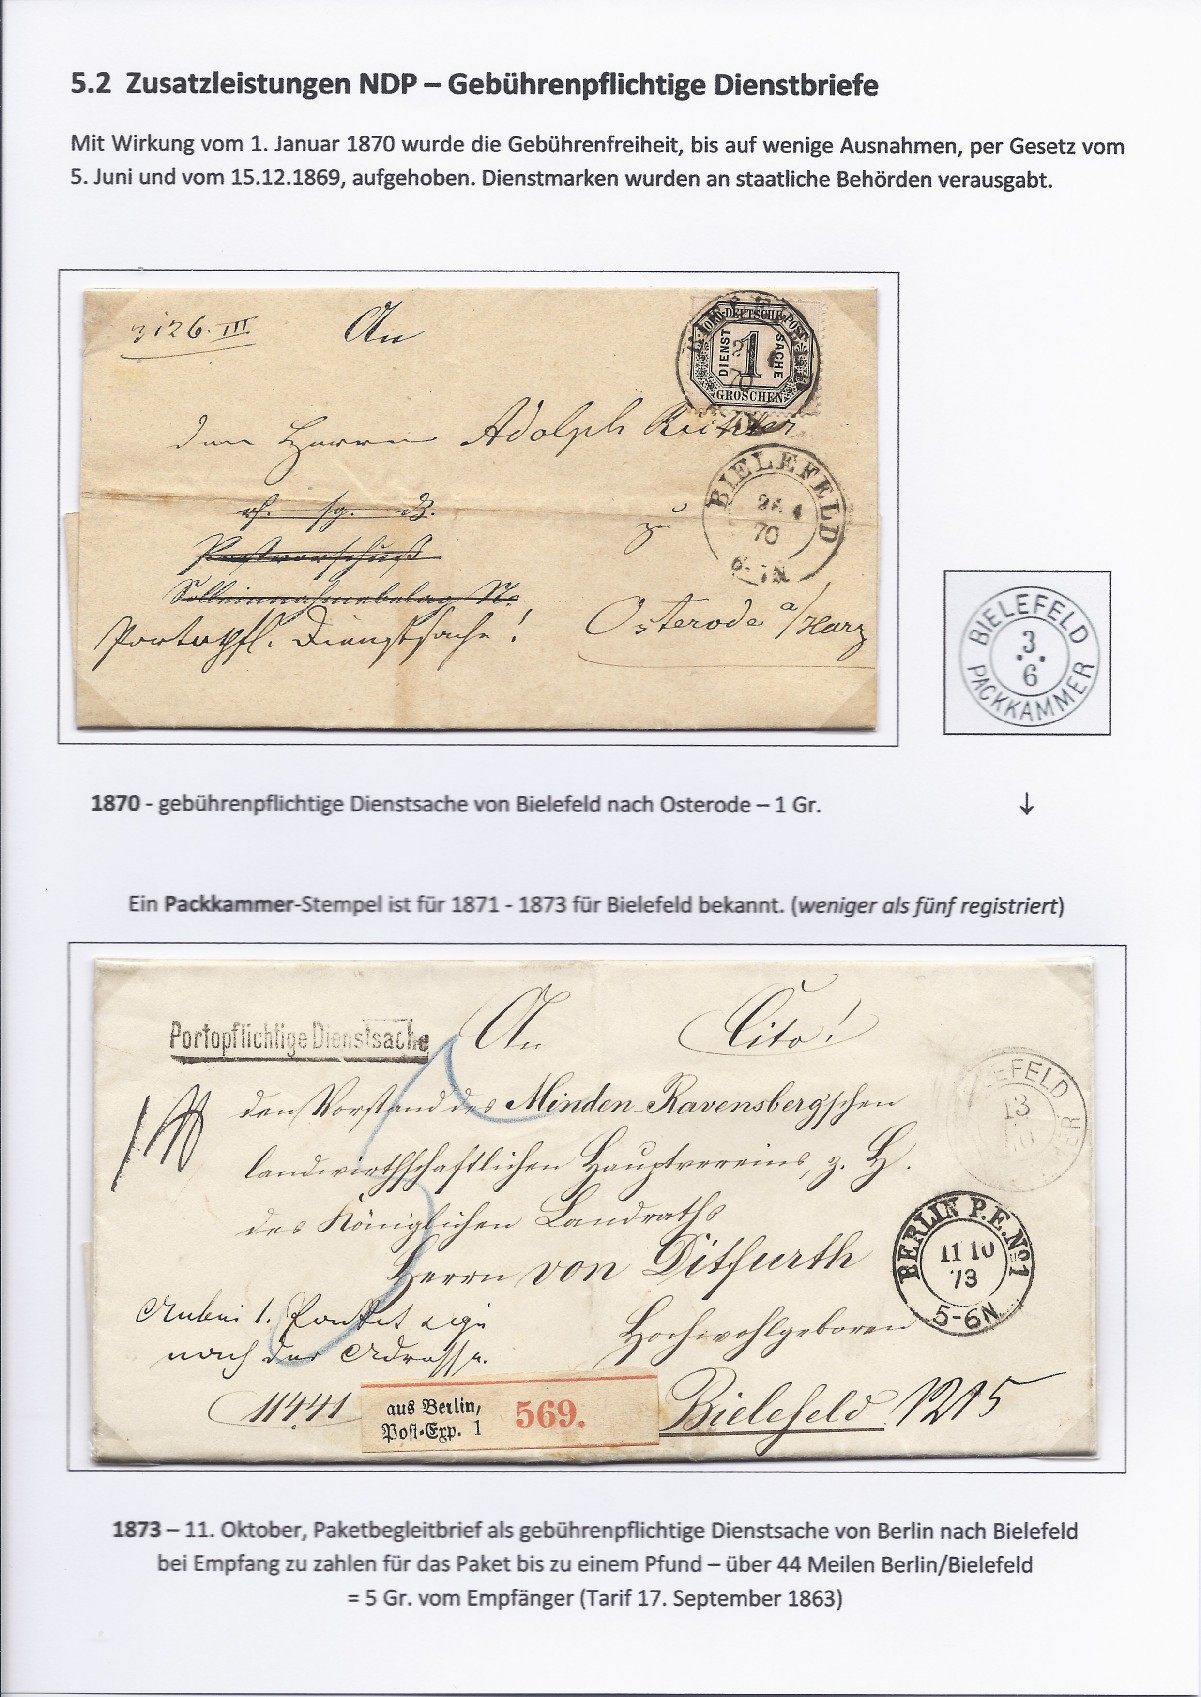 5.2 Zusatzleistungen NDP – Gebührenpflichtige Dienstbriefe
Mit Wirkung vom 1. Januar 1870 wurde die Gebührenfreiheit, bis auf wenige Ausnahmen, per Gesetz vom
5. Juni und vom 15.12.1869, aufgehoben. Dienstmarken wurden an staatliche Behörden verausgabt.
3126. III
An
NORDDEUTSCHE POST
DIENST 1 SACHE
GROSCHEN
dem Herrn Adolph Richter
BIELEFELD
70
zu
Postvorschuß
Solleinnahmebelag No.
Portopfl. Dienstsache!
Osterode a/Harz
BIELEFELD
3.
6
PACKKAMMER
1870 - gebührenpflichtige Dienstsache von Bielefeld nach Osterode – 1 Gr.
↓
Ein Packkammer-Stempel ist für 1871 - 1873 für Bielefeld bekannt. (weniger als fünf registriert)
Portopflichtige Dienstsache
An
Cito!
den Vorstand des Minden-Ravensberg'schen
landwirthschaftlichen Hauptvereins, z. H.
des Königlichen Landraths
Herrn von Ditfurth
Hochwohlgeboren
BIELEFELD
13
10
BERLIN P.E. No 1
11 10
73
5-6N
5
Anbei 1. Packet
nach der Adresse.
11441
aus Berlin,
Post-Exp. 1
569.
Bielefeld
1215
1873 – 11. Oktober, Paketbegleitbrief als gebührenpflichtige Dienstsache von Berlin nach Bielefeld
bei Empfang zu zahlen für das Paket bis zu einem Pfund – über 44 Meilen Berlin/Bielefeld
= 5 Gr. vom Empfänger (Tarif 17. September 1863)